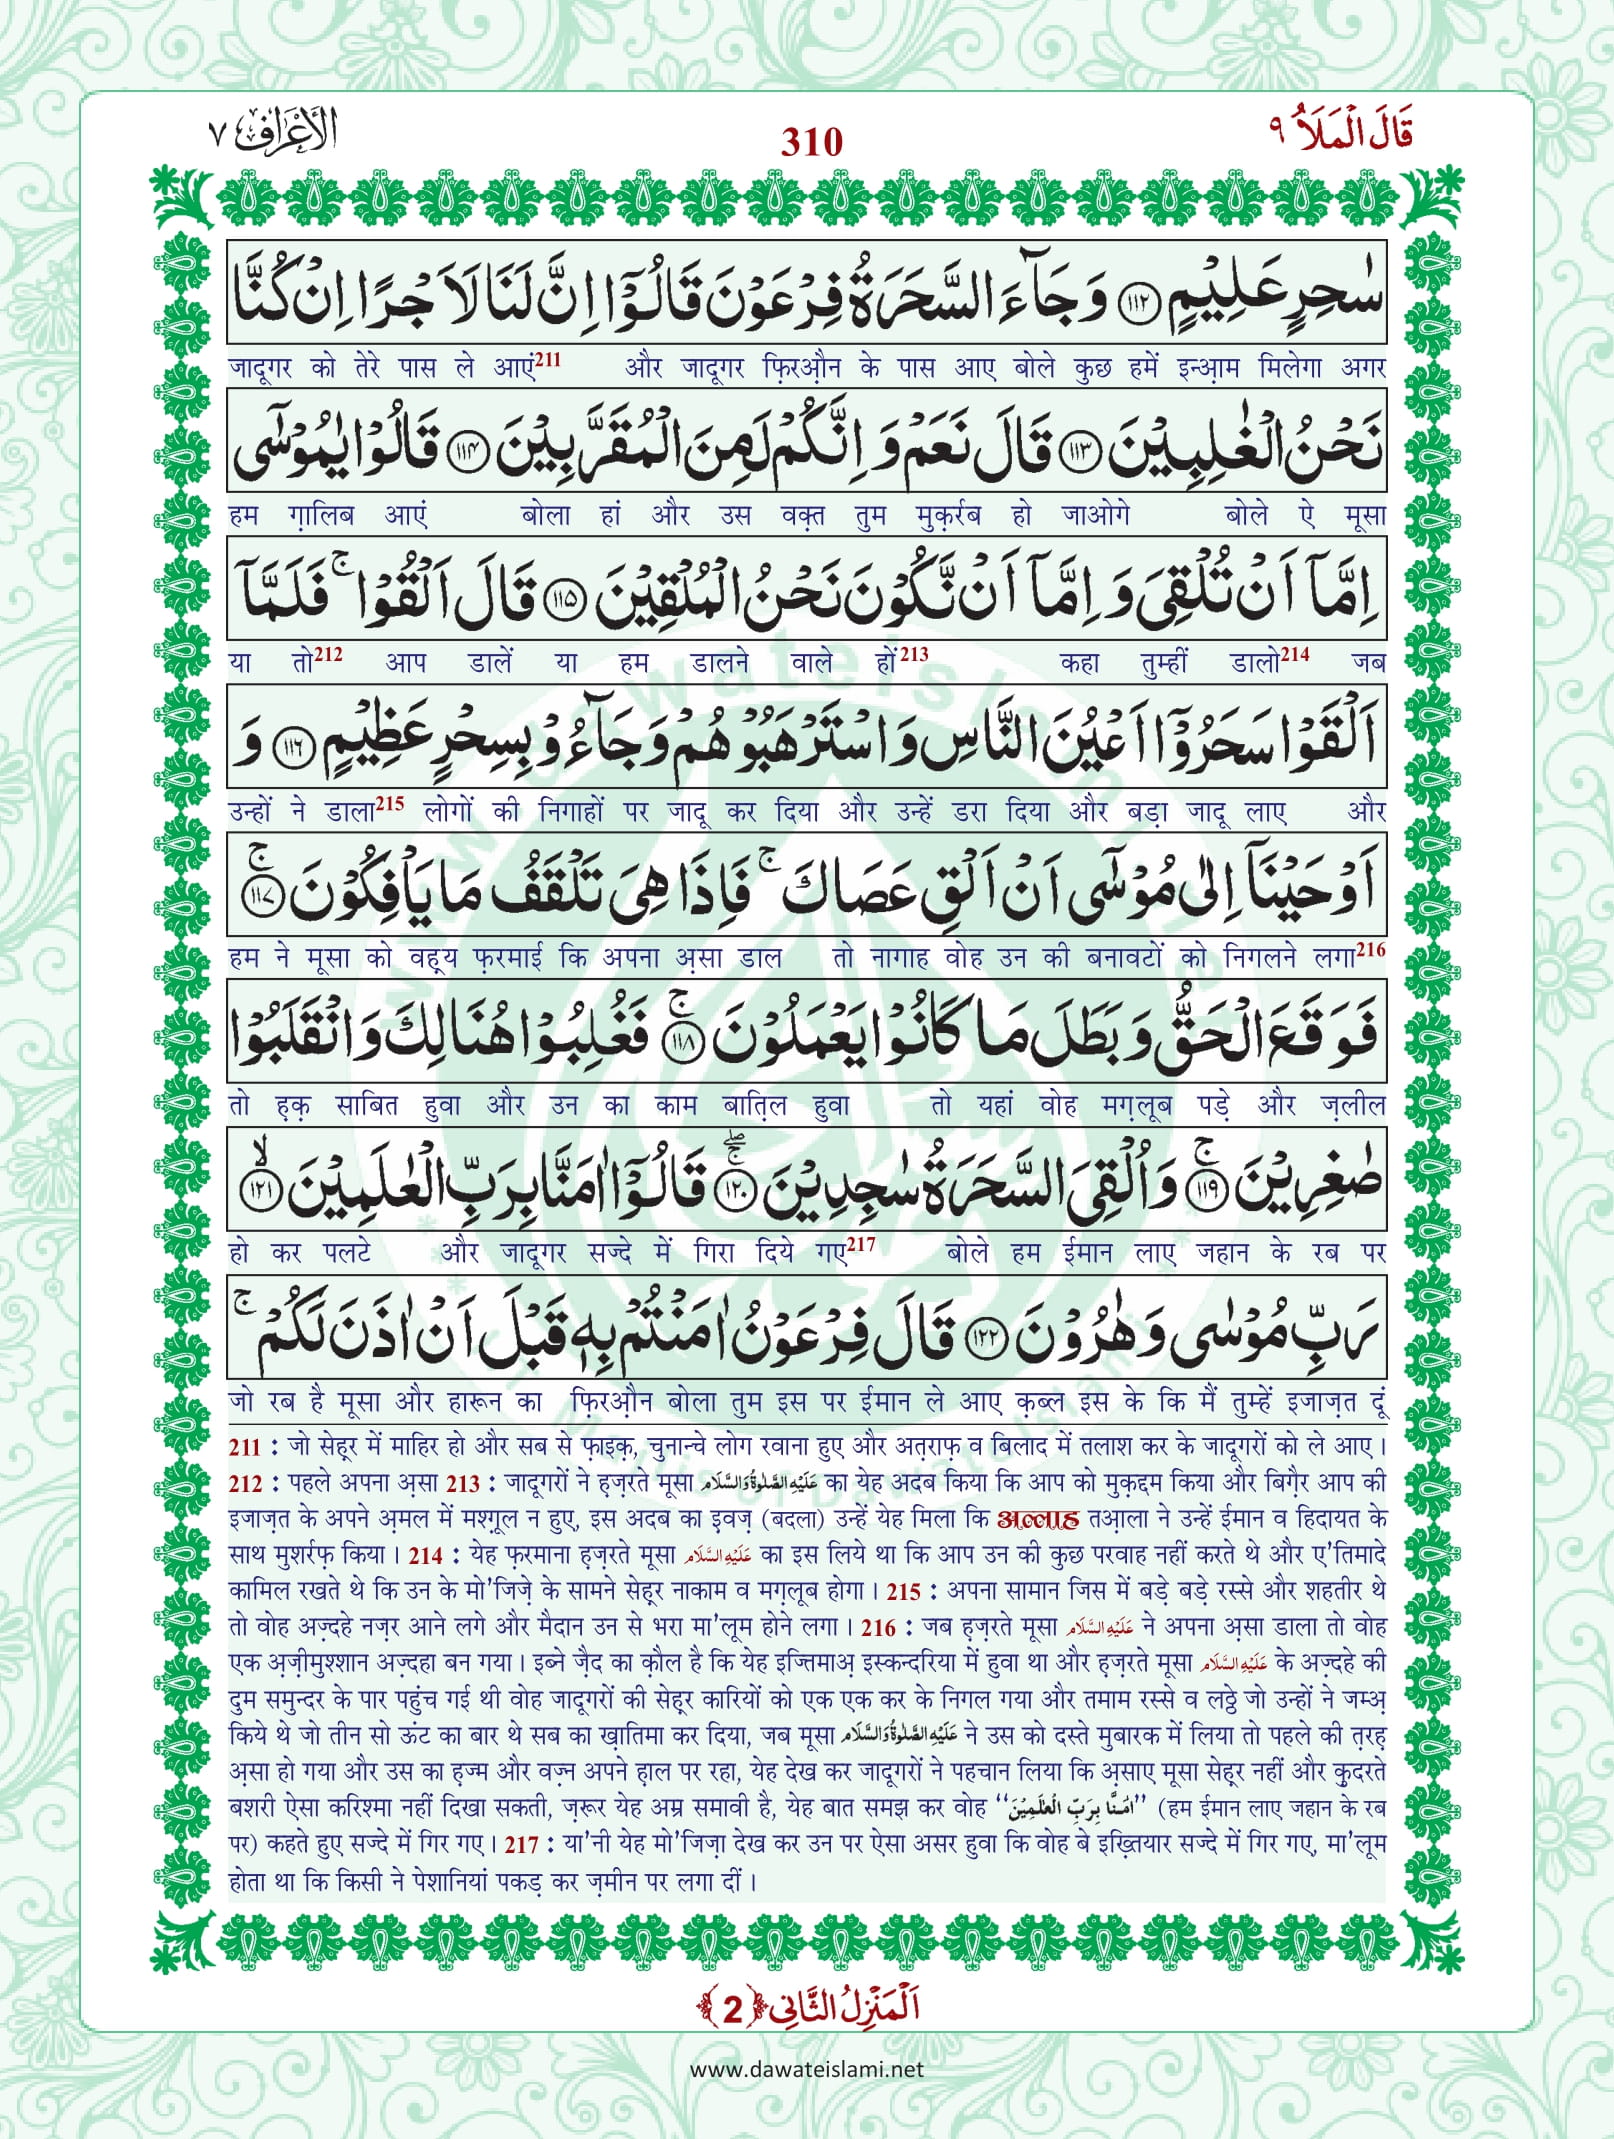 قَالَ الْمَلَاُ ٩
310
الْاَعْرَاف ٧
سٰحِرٍ عَلِیْمٍ ﴿۱۱۲﴾ وَ جَآءَ السَّحَرَةُ فِرْعَوْنَ قَالُوْۤا اِنَّ لَنَا لَاَجْرًا اِنْ كُنَّا
जादूगर को तेरे पास ले आएं211 और जादूगर फ़िरऔ़न के पास आए बोले कुछ हमें इन्आ़म मिलेगा अगर
نَحْنُ الْغٰلِبِیْنَ ﴿۱۱۳﴾ قَالَ نَعَمْ وَ اِنَّكُمْ لَمِنَ الْمُقَرَّبِیْنَ ﴿۱۱۴﴾ قَالُوْا یٰمُوْسٰۤى
हम ग़ालिब आएं बोला हां और उस वक़्त तुम मुक़र्रब हो जाओगे बोले ऐ मूसा
اِمَّاۤ اَنْ تُلْقِیَ وَ اِمَّاۤ اَنْ نَّكُوْنَ نَحْنُ الْمُلْقِیْنَ ﴿۱۱۵﴾ قَالَ اَلْقُوْا ۚ فَلَمَّاۤ
या तो212 आप डालें या हम डालने वाले हों213 कहा तुम्हीं डालो214 जब
اَلْقَوْا سَحَرُوْۤا اَعْیُنَ النَّاسِ وَ اسْتَرْهَبُوْهُمْ وَ جَآءُوْ بِسِحْرٍ عَظِیْمٍ ﴿۱۱۶﴾ وَ
उन्हों ने डाला215 लोगों की निगाहों पर जादू कर दिया और उन्हें डरा दिया और बड़ा जादू लाए और
اَوْحَیْنَاۤ اِلٰى مُوْسٰۤى اَنْ اَلْقِ عَصَاكَ ۚ فَاِذَا هِیَ تَلْقَفُ مَا یَاْفِكُوْنَ ﴿۱۱۷﴾ۚ
हम ने मूसा को वह़्य फ़रमाई कि अपना अ़सा डाल तो नागाह वोह उन की बनावटों को निगलने लगा216
فَوَقَعَ الْحَقُّ وَ بَطَلَ مَا كَانُوْا یَعْمَلُوْنَ ﴿۱۱۸﴾ۚ فَغُلِبُوْا هُنَالِكَ وَ انْقَلَبُوْا
तो ह़क़ साबित हुवा और उन का काम बात़िल हुवा तो यहां वोह मग़्लूब पड़े और ज़लील
صٰغِرِیْنَ ﴿۱۱۹﴾ۚ وَ اُلْقِیَ السَّحَرَةُ سٰجِدِیْنَ ﴿۱۲۰﴾ۚۖ قَالُوْۤا اٰمَنَّا بِرَبِّ الْعٰلَمِیْنَ ﴿۱۲۱﴾ۙ
हो कर पलटे और जादूगर सज्दे में गिरा दिये गए217 बोले हम ईमान लाए जहान के रब पर
رَبِّ مُوْسٰى وَ هٰرُوْنَ ﴿۱۲۲﴾ قَالَ فِرْعَوْنُ اٰمَنْتُمْ بِهٖ قَبْلَ اَنْ اٰذَنَ لَكُمْ ۚ
जो रब है मूसा और हारून का फ़िरऔ़न बोला तुम इस पर ईमान ले आए क़ब्ल इस के कि मैं तुम्हें इजाज़त दूं
211 : जो सेह़्र में माहिर हो और सब से फ़ाइक़, चुनान्चे लोग रवाना हुए और अत़राफ़ व बिलाद में तलाश कर के जादूगरों को ले आए।
212 : पहले अपना अ़सा 213 : जादूगरों ने ह़ज़रते मूसा عَلَیْهِ الصَّلٰوةُ وَالسَّلَام का येह अदब किया कि आप को मुक़द्दम किया और बिग़ैर आप की
इजाज़त के अपने अ़मल में मश्ग़ूल न हुए, इस अदब का इ़वज़ (बदला) उन्हें येह मिला कि अल्लाह तआ़ला ने उन्हें ईमान व हिदायत के
साथ मुशर्रफ़ किया। 214 : येह फ़रमाना ह़ज़रते मूसा عَلَیْهِ السَّلَام का इस लिये था कि आप उन की कुछ परवाह नहीं करते थे और ए'तिमादे
कामिल रखते थे कि उन के मो'जिज़े के सामने सेह़्र नाकाम व मग़्लूब होगा। 215 : अपना सामान जिस में बड़े बड़े रस्से और शहतीर थे
तो वोह अज़्दहे नज़र आने लगे और मैदान उन से भरा मा'लूम होने लगा। 216 : जब ह़ज़रते मूसा عَلَیْهِ السَّلَام ने अपना अ़सा डाला तो वोह
एक अ़ज़ीमुश्शान अज़्दहा बन गया। इब्ने ज़ैद का क़ौल है कि येह इज्तिमाअ़ इस्कन्दरिया में हुवा था और ह़ज़रते मूसा عَلَیْهِ السَّلَام के अज़्दहे की
दुम समुन्दर के पार पहुंच गई थी वोह जादूगरों की सेह़्र कारियों को एक एक कर के निगल गया और तमाम रस्से व लठ्ठे जो उन्हों ने जम्अ़
किये थे जो तीन सो ऊंट का बार थे सब का ख़ातिमा कर दिया, जब मूसा عَلَیْهِ الصَّلٰوةُ وَالسَّلَام ने उस को दस्ते मुबारक में लिया तो पहले की त़रह़
अ़सा हो गया और उस का ह़ज्म और वज़्न अपने ह़ाल पर रहा, येह देख कर जादूगरों ने पहचान लिया कि अ़साए मूसा सेह़्र नहीं और क़ुदरते
बशरी ऐसा करिश्मा नहीं दिखा सकती, ज़रूर येह अम्र समावी है, येह बात समझ कर वोह ‘‘اٰمَنَّا بِرَبِّ الْعٰلَمِیْنَ’’ (हम ईमान लाए जहान के रब
पर) कहते हुए सज्दे में गिर गए। 217 : या'नी येह मो'जिज़ा देख कर उन पर ऐसा असर हुवा कि वोह बे इख़्तियार सज्दे में गिर गए, मा'लूम
होता था कि किसी ने पेशानियां पकड़ कर ज़मीन पर लगा दीं।
اَلْمَنْزِلُ الثَّانِی ﴿2﴾
www.dawateislami.net